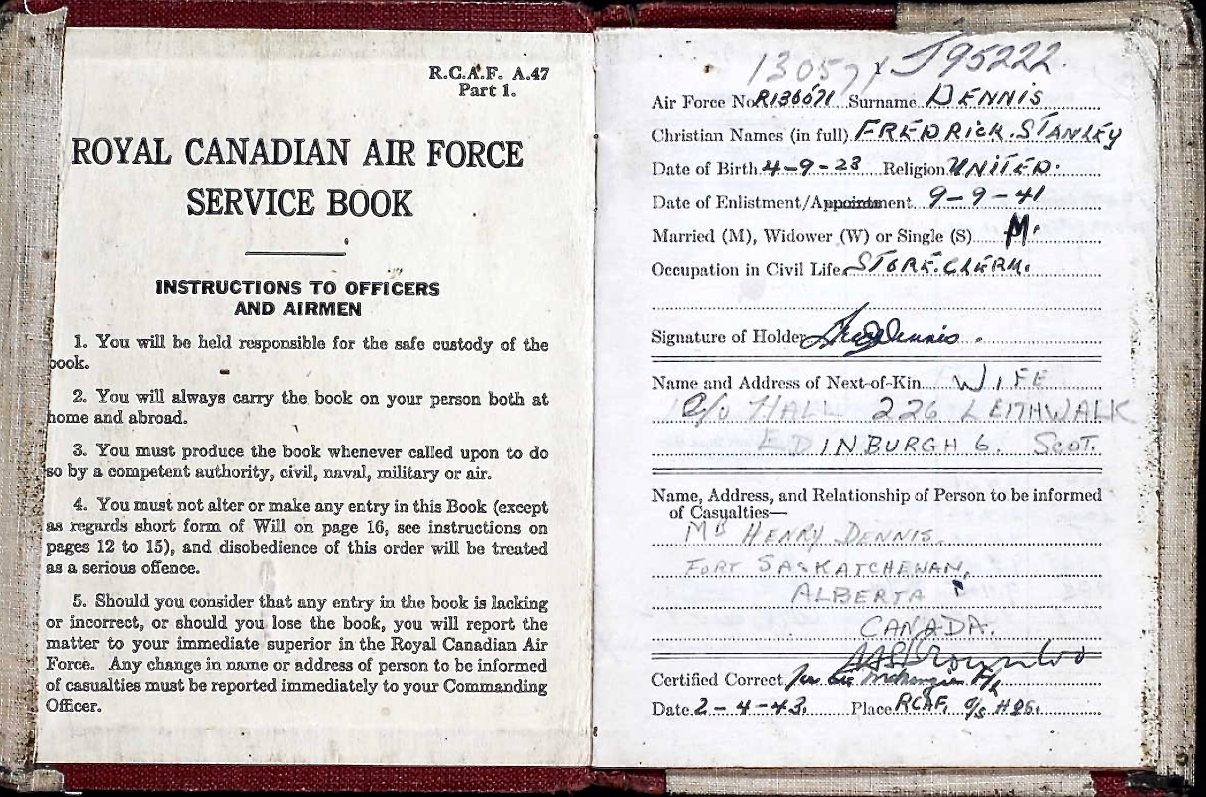 R.C.A.F. A.47
Part 1.
ROYAL CANADIAN AIR FORCE
SERVICE BOOK
INSTRUCTIONS TO OFFICERS
AND AIRMEN
1. You will be held responsible for the safe custody of the
book.
2. You will always carry the book on your person both at
home and abroad.
3. You must produce the book whenever called upon to do
so by a competent authority, civil, naval, military or air.
4. You must not alter or make any entry in this Book (except
as regards short form of Will on page 16, see instructions on
pages 12 to 15), and disobedience of this order will be treated
as a serious offence.
5. Should you consider that any entry in the book is lacking
or incorrect, or should you lose the book, you will report the
matter to your immediate superior in the Royal Canadian Air
Force. Any change in name or address of person to be informed
of casualties must be reported immediately to your Commanding
Officer.
J95222.
Air Force No. Surname DENNIS
Christian Names (in full) FREDRICK. STANLEY
Date of Birth 4-9-23 Religion UNITED.
Date of Enlistment/Appointment 9-9-41
Married (M), Widower (W) or Single (S) M.
Occupation in Civil Life STORE. CLERK.
Signature of Holder Dennis.
Name and Address of Next-of-Kin WIFE
C/O HALL 226 LEITHWALK
EDINBURGH 6. SCOT.
Name, Address, and Relationship of Person to be informed
of Casualties—
MR HENRY DENNIS.
FORT SASKATCHEWAN,
ALBERTA
CANADA.
Certified Correct
Date 2-4-43. Place RCAF. O/S HQS.